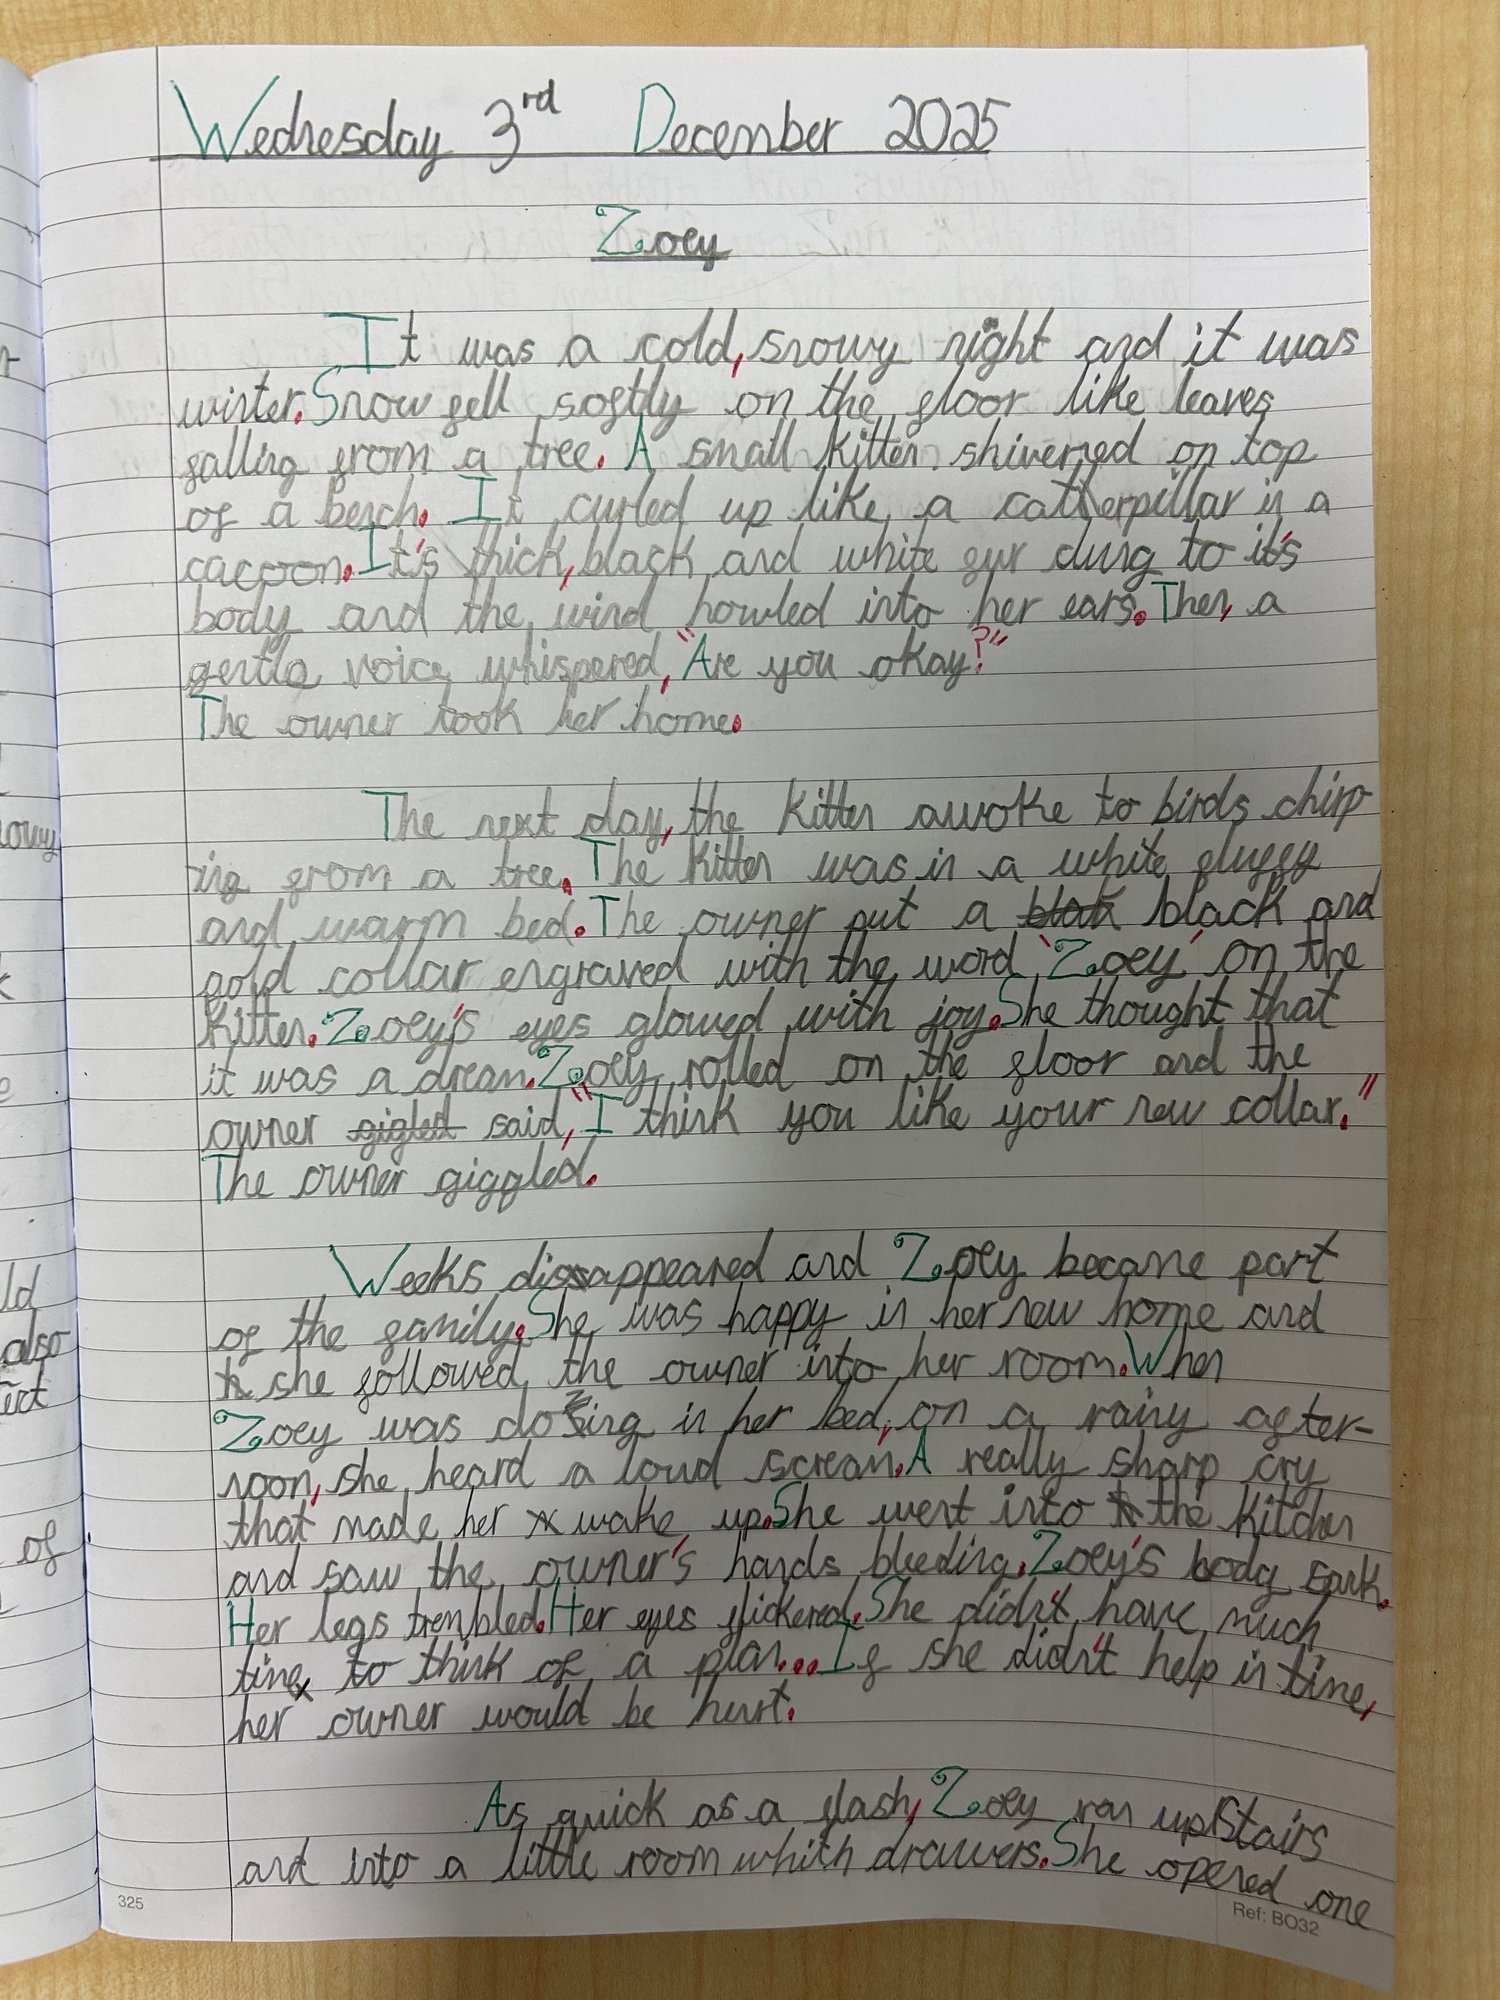 Wednesday 3rd December 2025
Zoey
It was a cold, snowy night and it was
winter. Snow fell softly on the floor like leaves
falling from a tree. A small kitten shiverred on top
of a bench. It curled up like a catterpillar in a
cacoon. It's thick, black and white fur clung to it's
body and the wind howled into her ears. Then, a
gentle voice whispered, "Are you okay?"
The owner took her home.
The next day, the kitten awoke to birds chirp
ing from a tree. The kitten was in a white fluffy
and warm bed. The owner put a black and
gold collar engraved with the word 'Zoey' on the
kitten. Zoey's eyes glowed with joy. She thought that
it was a dream. Zoey rolled on the floor and the
owner gigled said, "I think you like your new collar."
The owner giggled.
Weeks dissappeared and Zoey became part
of the family. She was happy in her new home and
she followed the owner into her room. When
Zoey was dozing in her bed, on a rainy after-
noon, she heard a loud scream. A really sharp cry
that made her wake up. She went into the kitchen
and saw the owner's hands bleeding. Zoey's body sank.
Her legs trembled. Her eyes flickered. She didn't have much
time to think of a plan... If she didn't help in time,
her owner would be hurt.
As quick as a flash, Zoey ran upstairs
and into a little room which drawers. She opened one
325
Ref: BO32
owy
ld
also
of